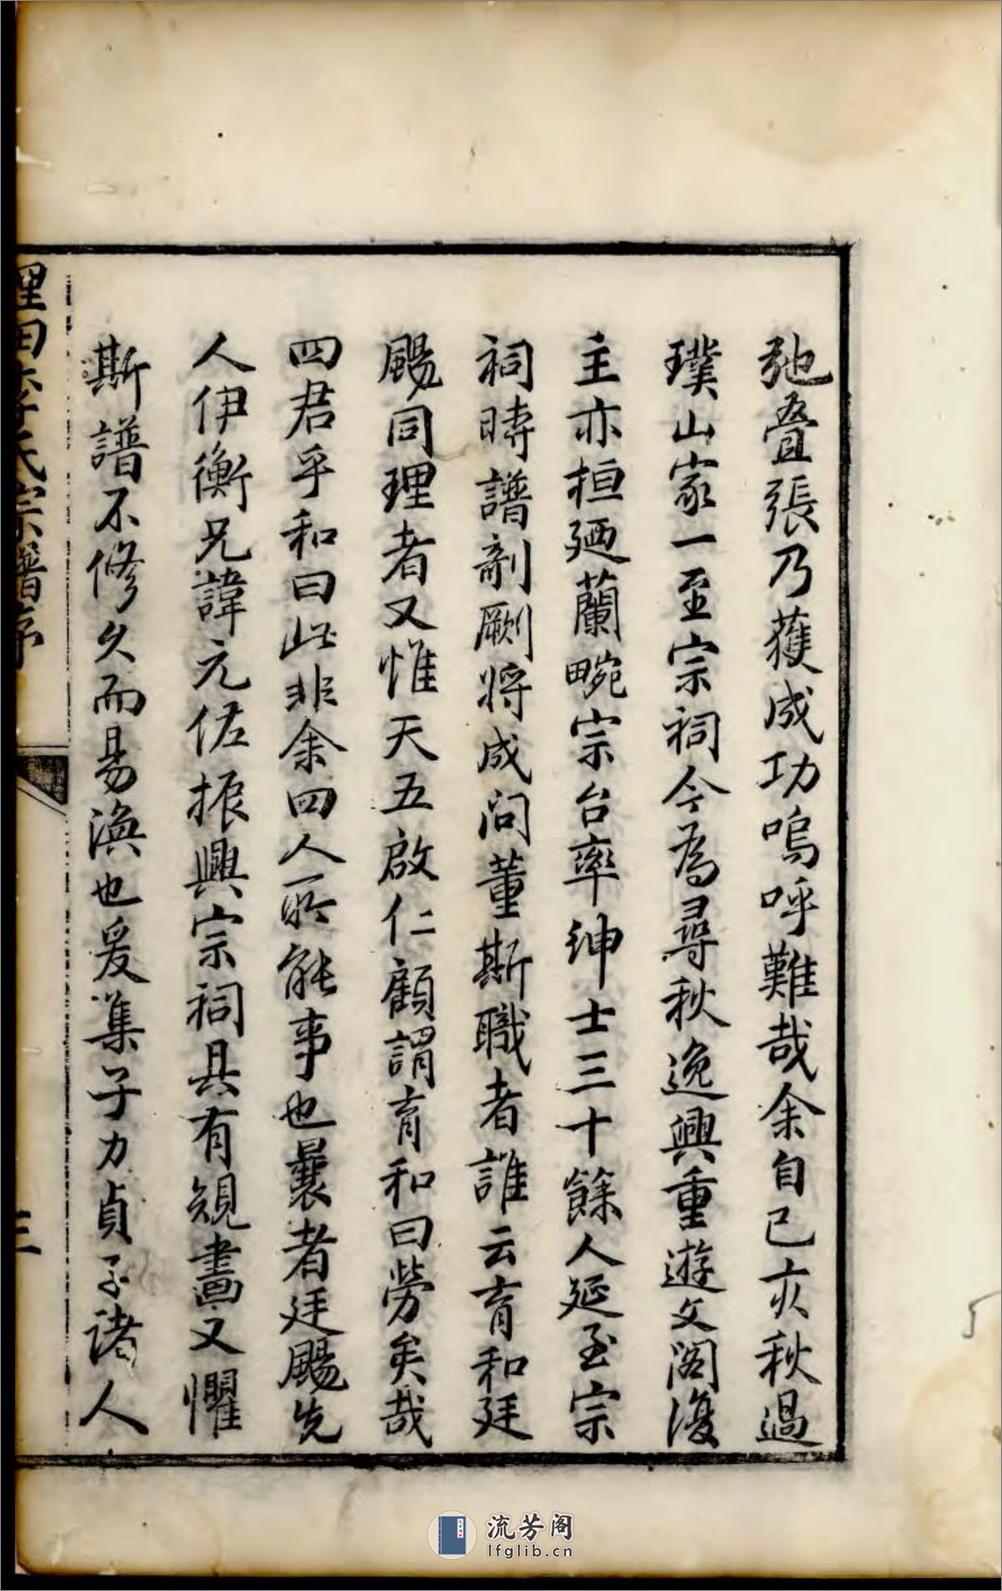 弛叠張乃獲成功嗚呼難哉余自已亥秋過
璞山家一至宗祠今為尋秋逸興重遊文閣復
主亦桓廼蘭畹宗台率紳士三十餘人延至宗
祠時譜剞劂將成问董斯職者誰云育和廷
颺同理者又惟天五啟仁顧謂育和曰勞矣哉
四君乎和曰此非余四人所能事也曩者廷颺先
人伊衡兄諱元佐振興宗祠具有規畫又懼
斯譜不修久而易渙也爰集子力貞子諸人
理田李氏宗譜序
三
流芳阁
lfglib.cn